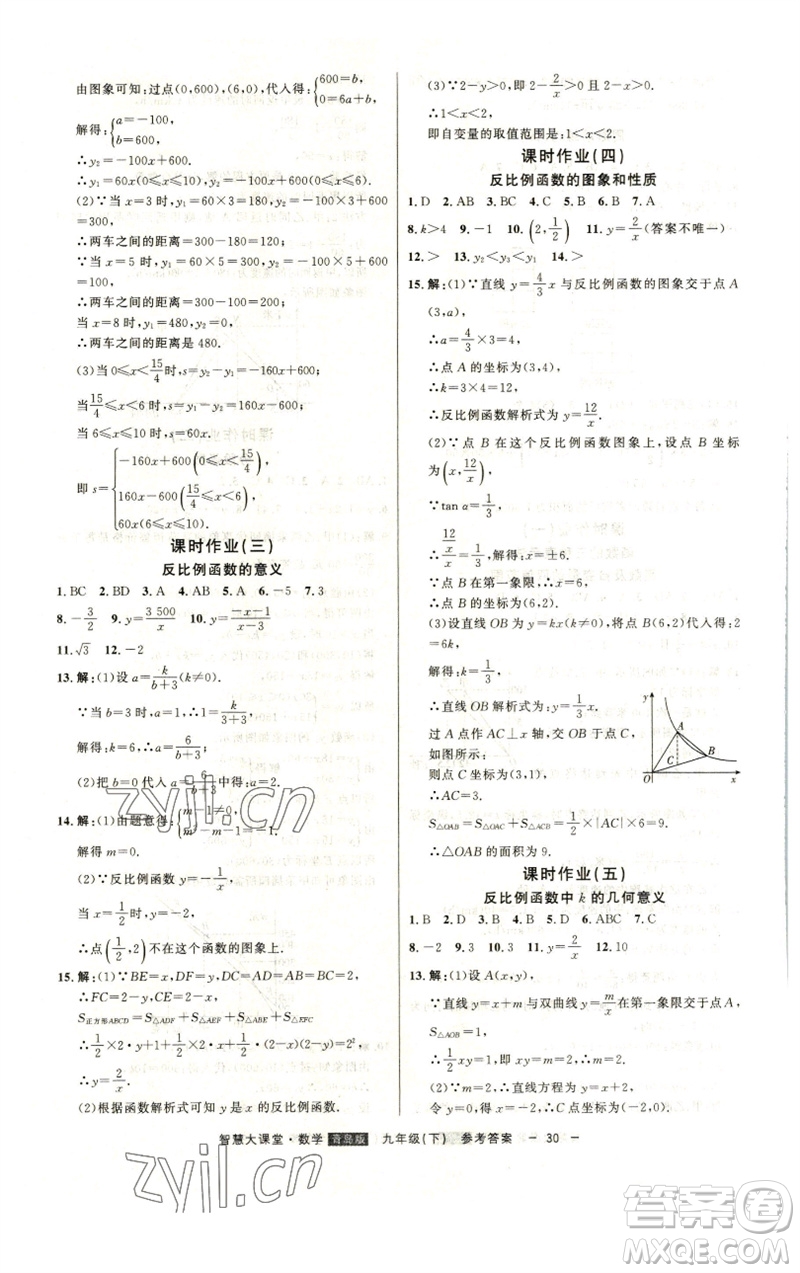 由图象可知:过点(0,600),(6,0),代入得:{600=b, 0=6a+b,
解得:{a=-100, b=600,
∴y₂=-100x+600.
∴y₁=60x(0≤x≤10),y₂=-100x+600(0≤x≤6).
(2)∵当 x=3 时,y₁=60×3=180,y₂=-100×3+600
=300,
∴两车之间的距离=300-180=120;
∵当 x=5 时,y₁=60×5=300,y₂=-100×5+600
=100,
∴两车之间的距离=300-100=200;
当 x=8 时,y₁=480,y₂=0,
∴两车之间的距离是 480.
(3)当 0≤x≤15/4时,s=y₂-y₁=-160x+600;
当15/4≤x<6 时,s=y₁-y₂=160x-600;
当 6≤x≤10 时,s=60x.
即 s={-160x+600(0≤x≤15/4),
160x-600(15/4≤x<6),
60x(6≤x≤10).
课时作业(三)
反比例函数的意义
1. BC 2. BD 3. A 4. AB 5. A 6. -5 7. 3
8. -3/2 9. y=3 500/x 10. y=(-x-1)/(x-3)
11. √3 12. -2
13. 解:(1)设 a=k/(b+3)(k≠0).
∵当 b=3 时,a=1,∴1=k/(3+3),
解得:k=6,∴a=6/(b+3);
(2)把 b=0 代入 a=6/(b+3)中得:a=2.
14. 解:(1)由题意得:{m-1≠0, m²-m-1=-1.
解得 m=0.
(2)∵反比例函数 y=-1/x,
当 x=1/2时,y=-2,
∴点(1/2,2)不在这个函数的图象上.
15. 解:(1)∵BE=x,DF=y,
∴FC=2-y,CE=2-x,
S正方形ABCD=S△ADF+S△AEF+S△ABE+S△EFC
∴1/2×2·y+1/2×2·x+1+1/2·(2-x)(2-y)=2²
∴y=2/x.
(2)根据函数解析式可知 y 是 x 的反比例函数.
(3)∵2-y>0,即 2-2/x>0 且 2-x>0.
∴1<x<2.
即自变量的取值范围是:1<x<2.
课时作业(四)
反比例函数的图象和性质
1. D 2. AB 3. BC 4. C 5. B 6. B 7. A
8. k>4 9. -1 10. (2,1/2) 11. y=2/x(答案不唯一)
12. > 13. y₂<y₃<y₁ 14. >
15. 解:(1)∵直线 y=4/3x 与反比例函数的图象交于点 A
(3,a),
∴a=4/3×3=4,
∴点 A 的坐标为(3,4),
∴k=3×4=12,
∴反比例函数解析式为 y=12/x.
(2)∵点 B 在这个反比例函数图象上,设点 B 坐标
为(x,12/x),
∵tan α=1/3,
∴(12/x)/x=1/3,解得:x=±6,
∵点 B 在第一象限,∴x=6,
∴点 B 的坐标为(6,2).
(3)设直线 OB 为 y=kx(k≠0),将点 B(6,2)代入得:2
=6k,
解得:k=1/3,
∴直线 OB 解析式为:y=1/3x.
过 A 点作 AC⊥x 轴,交 OB 于点 C,
如图所示:
则点 C 坐标为(3,1),
∴AC=3.
S△OAB=S△OAC+S△ACB=1/2×|AC|×6=9.
∴△OAB 的面积为 9.
y
A
B
C
O
x
课时作业(五)
反比例函数中 k 的几何意义
1. B 2. D 3. C 4. B 5. D 6. ABC 7. C
8. -2 9. 3 10. 3 11. y=2/x 12. 10
13. 解:(1)设 A(x,y),
∵直线 y=x+m 与双曲线 y=m/x在第一象限交于点A,
S△AOB=1,
∴1/2xy=1,即 xy=m=2,∴m=2.
(2)∵m=2,∴直线方程为 y=x+2,
令 y=0,得 x=-2,
智慧大课堂·数学 青岛版 九年级(下) 参考答案 - 30 -
zyjl.cn
zyjl.cn
答案圈
MXQE.COM